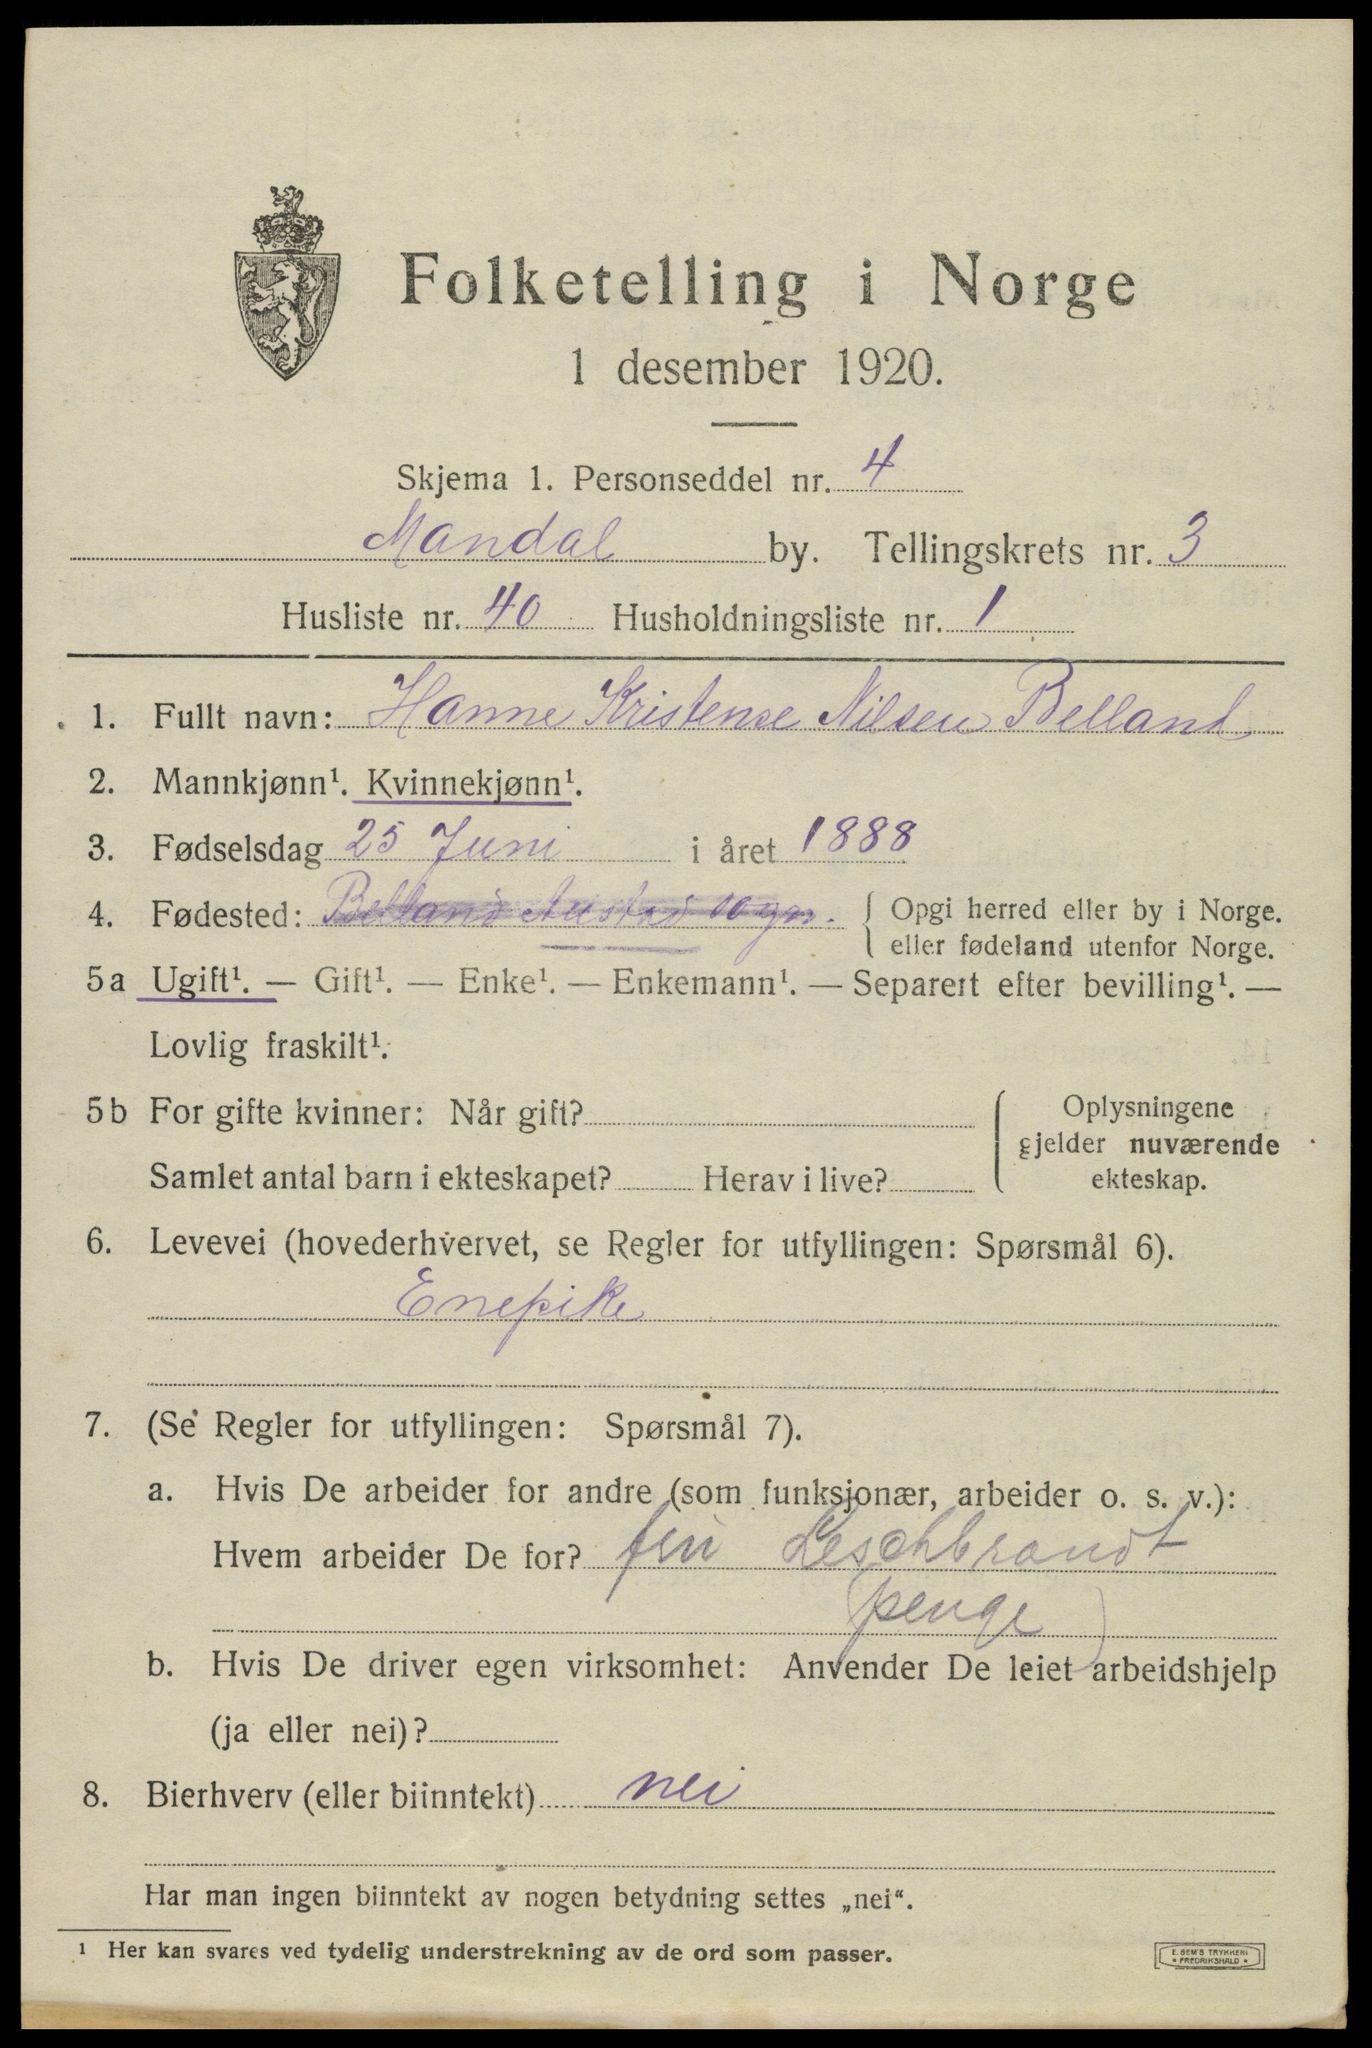 Folketelling i Norge
1 desember 1920.
Skjema 1. Personseddel nr. 4
Mandal by. Tellingskrets nr. 3
Husliste nr. 40 Husholdningsliste nr. 1
1. Fullt navn: Hanne Kristense Nilsen Belland
2. Mannkjønn¹. Kvinnekjønn¹.
3. Fødselsdag 25 Juni i året 1888
4. Fødested: Belland Austad sogn. Opgi herred eller by i Norge.
eller fødeland utenfor Norge.
5a Ugift¹. — Gift¹. — Enke¹. — Enkemann¹. — Separert efter bevilling¹. —
Lovlig fraskilt¹.
5b For gifte kvinner: Når gift?
Samlet antal barn i ekteskapet? Herav i live?
Oplysningene
gjelder nuværende
ekteskap.
6. Levevei (hovederhvervet, se Regler for utfyllingen: Spørsmål 6).
Enepike
7. (Se Regler for utfyllingen: Spørsmål 7).
a. Hvis De arbeider for andre (som funksjonær, arbeider o. s. v.):
Hvem arbeider De for? Leschbrandt
(penge)
b. Hvis De driver egen virksomhet: Anvender De leiet arbeidshjelp
(ja eller nei)?
8. Bierhverv (eller biinntekt) nei
Har man ingen biinntekt av nogen betydning settes „nei“.
¹ Her kan svares ved tydelig understrekning av de ord som passer.
E. SEM'S TRYKKERI
* FREDRIKSHALD *